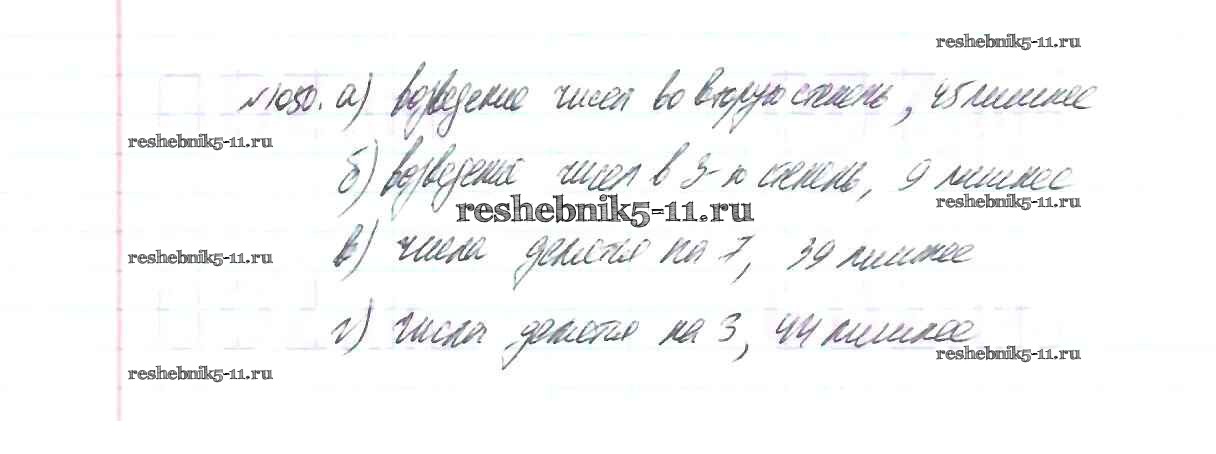 reshebnik5-11.ru
№1050. а) возведение чисел во вторую степень, 45 лишнее
reshebnik5-11.ru
б) возведение чисел в 3-ю степень, 9 лишнее
reshebnik5-11.ru
reshebnik5-11.ru
в) числа делятся на 7, 39 лишнее
reshebnik5-11.ru
г) числа делятся на 3, 44 лишнее
reshebnik5-11.ru
reshebnik5-11.ru